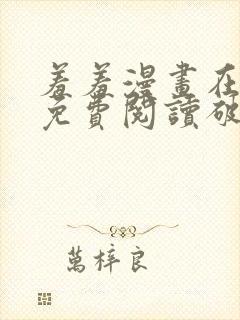 羞羞漫畫在
免費閱讀破
萬梓良